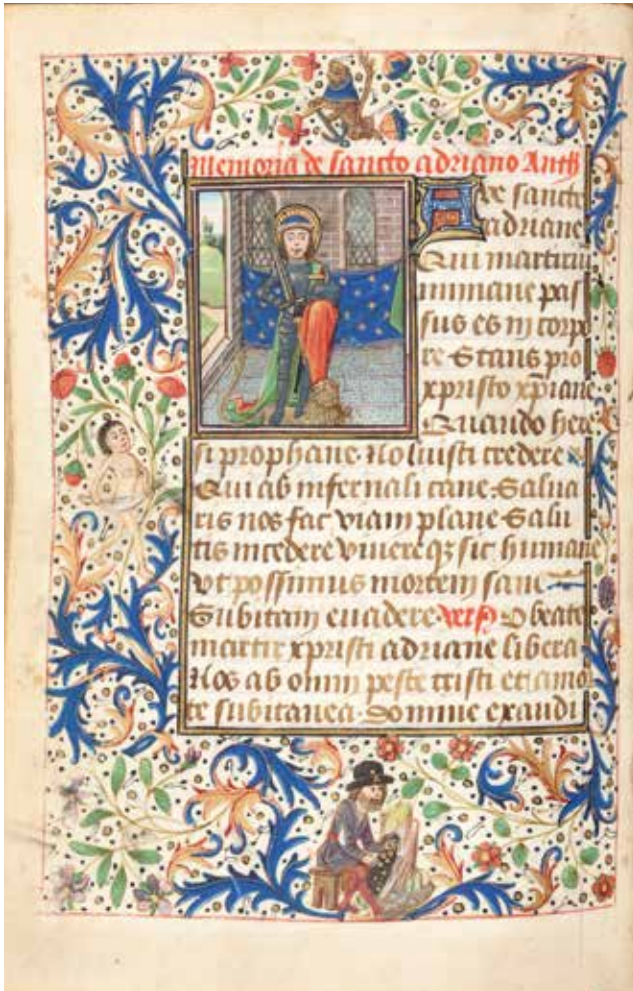 Memoria de sancto adriano Anth
Ave sancte
adriane
Qui martiriu
inmane pas
sus es in corpo
re Stans pro
xpristo xp̄iane
Quando here
si prophane. Noluisti credere
Qui ab infernali cane. Salua
ris nos fac viam plane Salu
tis incedere viuere qꝫ sic humane
Vt possimus mortem sane
Subitam euadere. vers̄ O beate
martir xpristi adriane libera
Nos ab omni peste tristi et a mo
te subitanea. Domine exaudi